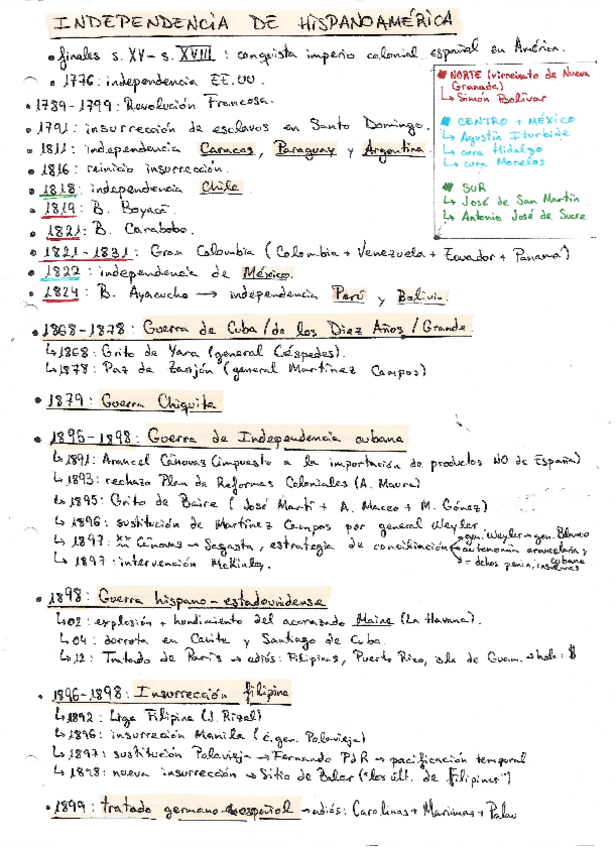 INDEPENDENCIA DE HISPANOAMÉRICA
• finales s. XV – s. XVIII : conquista imperio colonial español en América.
• 1776: independencia EE.UU
• 1789-1799: Revolución Francesa.
• 1791: insurrección de esclavos en Santo Domingo.
• 1811: independencia Caracas, Paraguay y Argentina.
• 1816: reinicio insurrección.
• 1818: independencia Chile
• 1819: B. Boyacá.
• 1821: B. Carabobo.
• 1821-1831: Gran Colombia (Colombia + Venezuela + Ecuador + Panamá)
• 1822: independencia de México.
• 1824: B. Ayacucho → independencia Perú y Bolivia.
NORTE (virreinato de Nueva
Granada)
↳ Simón Bolívar
CENTRO + MÉXICO
↳ Agustín Iturbide
↳ cura Hidalgo
↳ cura Morelos
SUR
↳ José de San Martín
↳ Antonio José de Sucre
• 1868-1878: Guerra de Cuba / de los Diez Años / Grande
↳ 1868: Grito de Yara (general Céspedes).
↳ 1878: Paz de Zanjón (general Martínez Campos)
• 1879: Guerra Chiquita
• 1895-1898: Guerra de Independencia cubana
↳ 1891: Arancel Cánovas (impuesto a la importación de productos NO de España)
↳ 1893: rechazo Plan de Reformas Coloniales (A. Maura)
↳ 1895: Grito de Baire (José Martí + A. Maceo + M. Gómez)
↳ 1896: sustitución de Martínez Campos por general Weyler
↳ 1897: Cánovas → Sagasta, estrategia de conciliación
gen. Weyler → gen. Blanco
autonomía arancelaria y
= dchos penin, insulares
cubana
↳ 1897: intervención McKinley.
• 1898: Guerra hispano-estadounidense
↳ 02: explosión + hundimiento del acorazado Maine (La Habana).
↳ 04: derrota en Cavite y Santiago de Cuba.
↳ 12: Tratado de París → adiós: Filipinas, Puerto Rico, isla de Guam. → hola: $
• 1896-1898: Insurrección filipina
↳ 1892: Liga Filipina (J. Rizal)
↳ 1896: insurrección Manila (c. gen. Polavieja)
↳ 1897: sustitución Polavieja → Fernando PdR → pacificación temporal
↳ 1898: nueva insurrección → Sitio de Baler ("los últ. de Filipinas")
• 1899: tratado germano-español → adiós: Carolinas + Marianas + Palau